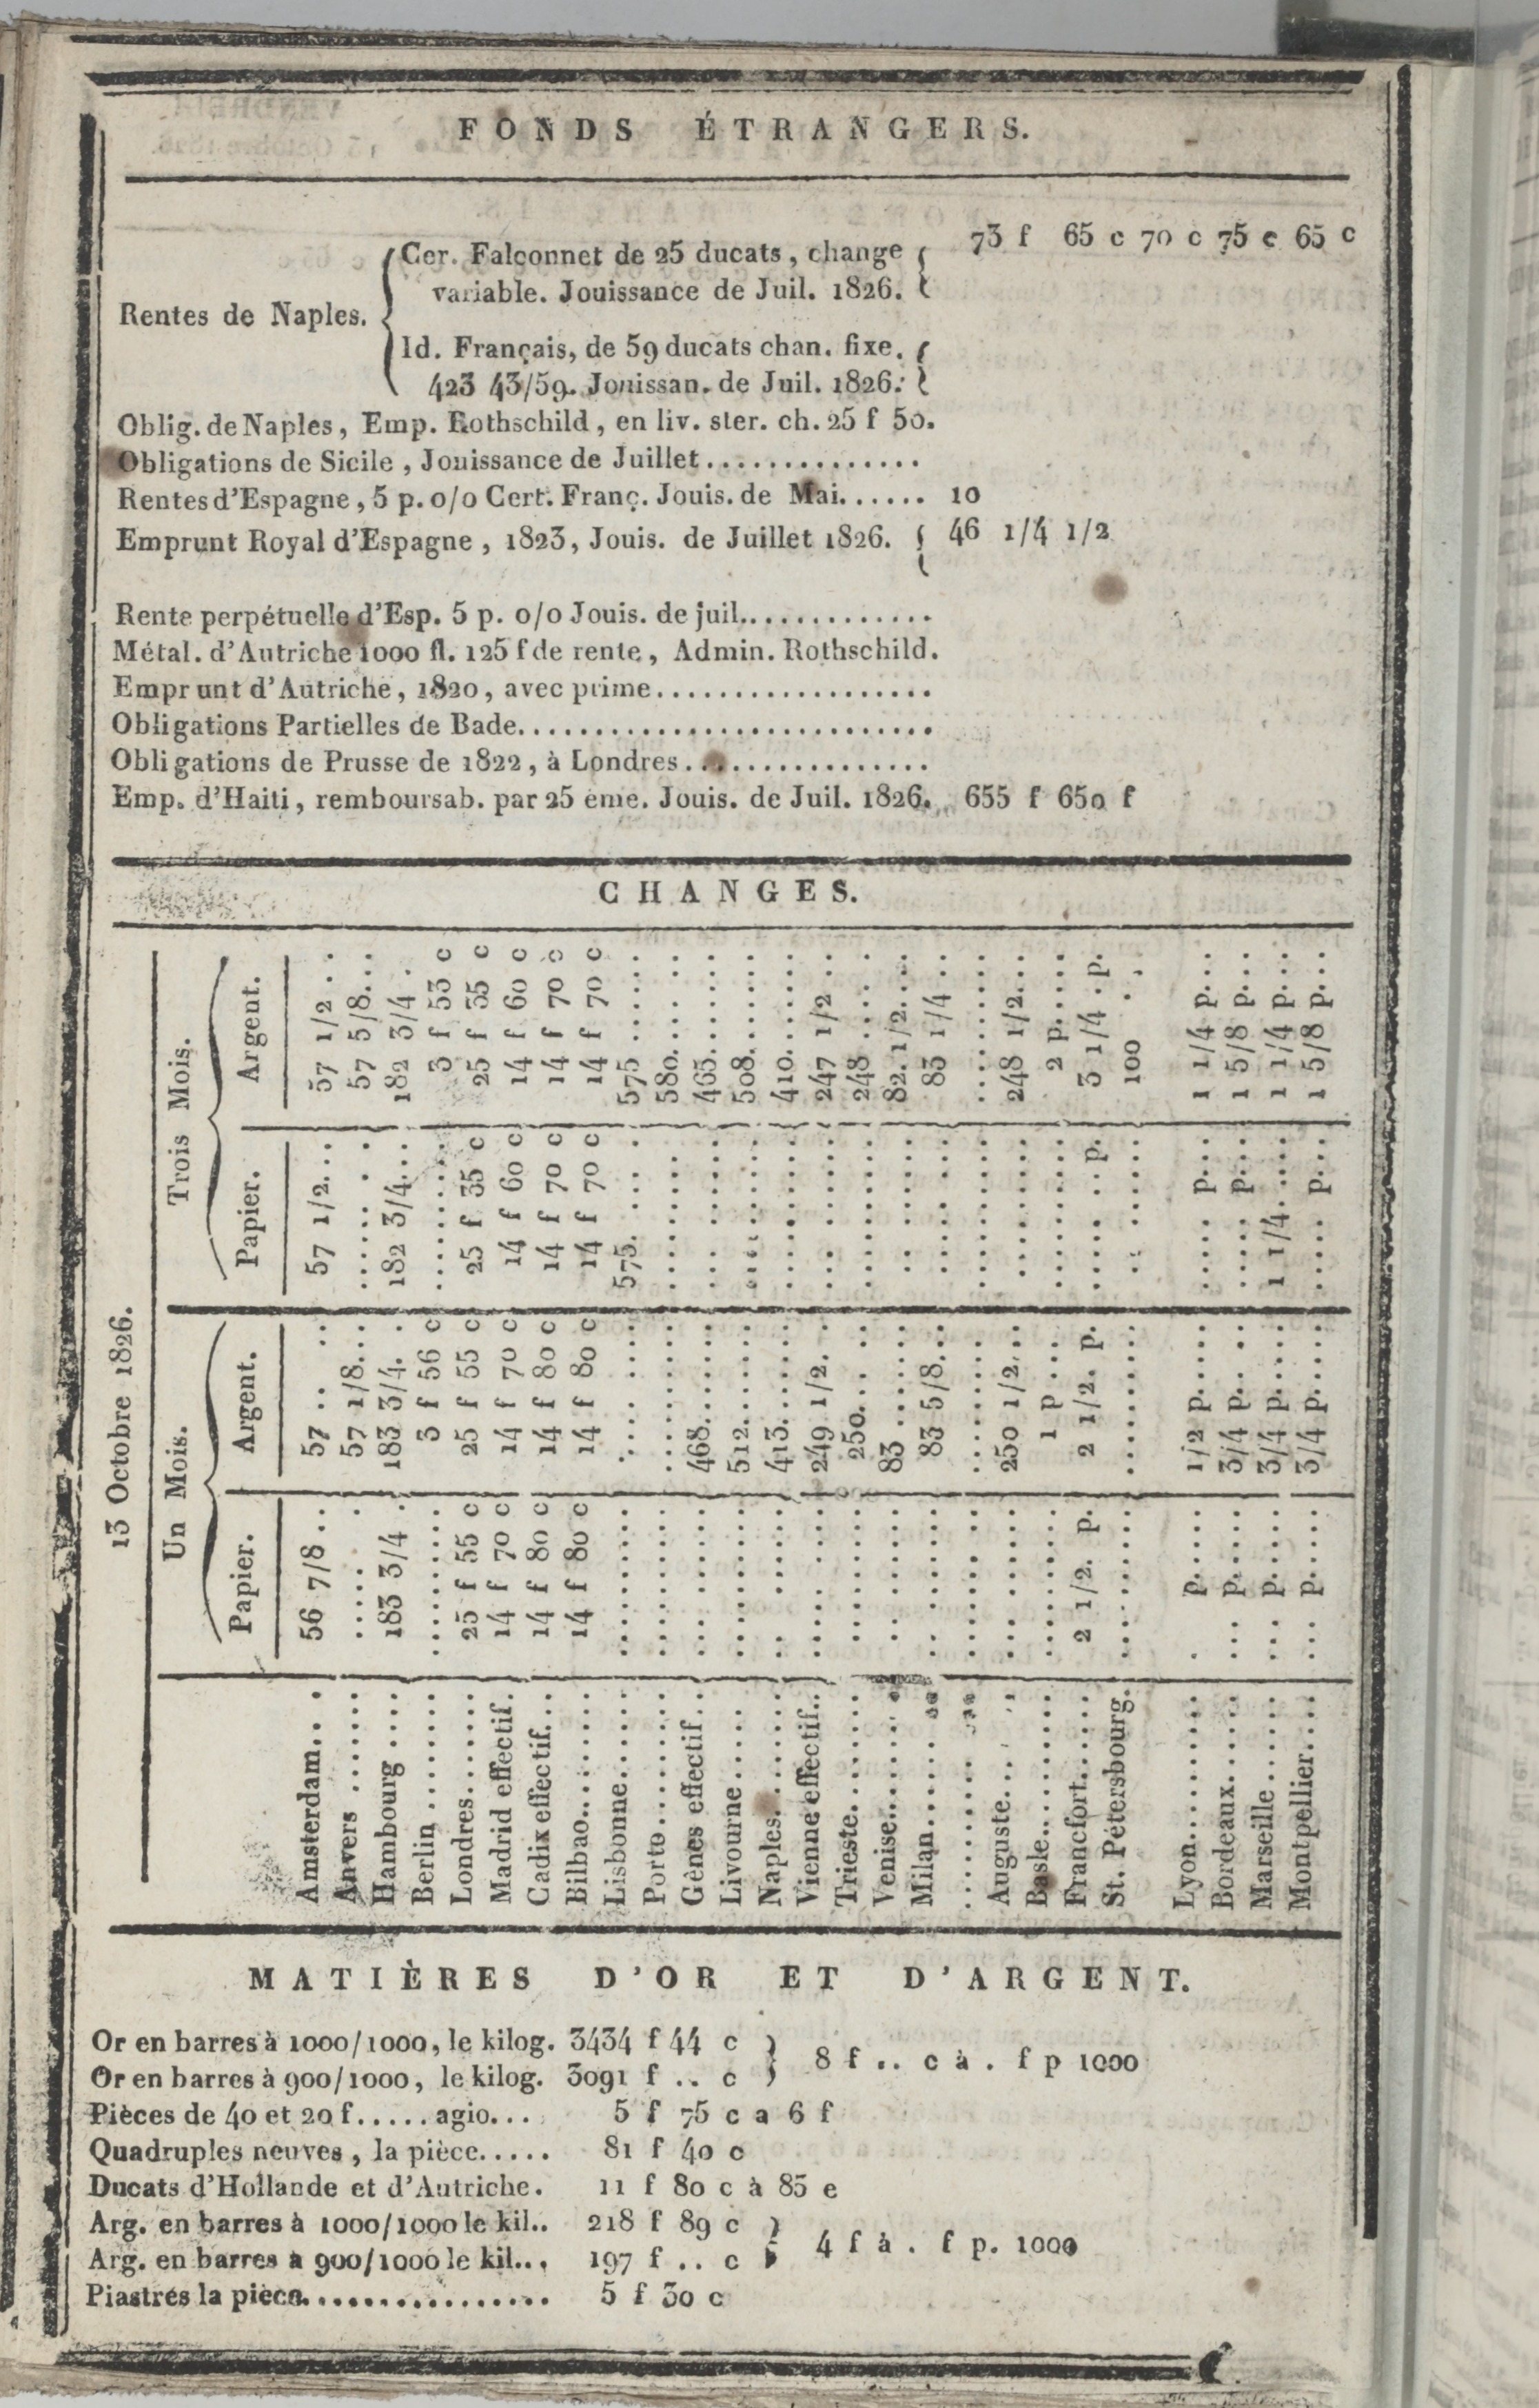 FONDS ÉTRANGERS.
Rentes de Naples.
Cer. Falconnet de 25 ducats, change 73 f 65 c 70 c 75 c 65 c
variable. Jouissance de Juil. 1826.
Id. Français, de 59 ducats chan. fixe.
423 43/59. Jouissan. de Juil. 1826.
Oblig. de Naples, Emp. Rothschild, en liv. ster. ch. 25 f 50.
Obligations de Sicile, Jouissance de Juillet..............
Rentes d'Espagne, 5 p. o/o Cert. Franç. Jouis. de Mai...... 10
Emprunt Royal d'Espagne, 1823, Jouis. de Juillet 1826. 46 1/4 1/2
Rente perpétuelle d'Esp. 5 p. o/o Jouis. de juil.............
Métal. d'Autriche 1000 fl. 125 f de rente, Admin. Rothschild.
Emprunt d'Autriche, 1820, avec prime..................
Obligations Partielles de Bade...........................
Obligations de Prusse de 1822, à Londres................
Emp. d'Haiti, remboursab. par 25 eme. Jouis. de Juil. 1826. 655 f 650 f
CHANGES.
13 Octobre 1826.
Un Mois. Trois Mois.
Papier. Argent. Papier. Argent.
Amsterdam.... 56 7/8... 57 .... 57 1/2... 57 1/2 ..
Anvers ....... ..... . 57 1/8... ..... . . 57 5/8...
Hambourg .... 183 3/4 . 183 3/4. . 182 3/4... 182 3/4 .
Berlin ........ ......... 3 f 56 c ......... 3 f 53 c
Londres....... 25 f 55 c 25 f 55 c 25 f 35 c 25 f 35 c
Madrid effectif. 14 f 70 c 14 f 70 c 14 f 60 c 14 f 60 c
Cadix effectif... 14 f 80 c 14 f 80 c 14 f 70 c 14 f 70 c
Bilbao........ 14 f 80 c 14 f 80 c 14 f 70 c 14 f 70 c
Lisbonne...... .......... ........ 575. .... 575 ......
Porto......... .......... ......... ......... 580......
Gènes effectif... .......... 468....... ......... 465.......
Livourne ...... .......... 512....... ......... 508.......
Naples........ .......... 413....... ......... 410.......
Vienne effectif.. ......... 249 1/2. . ......... 247 1/2 ..
Trieste........ .......... 250... .. ......... 248 ....
Venise........ ......... 83 ...... ........ 82. 1/2....
Milan........ ......... 83 5/8... ........ 83 1/4 ..
........... ......... ......... ......... .........
Auguste.... ......... 250 1/2... ......... 248 1/2...
Basle......... ......... 1 p ... ......... 2 p.....
Francfort...... 2 1/2. p. 2 1/2. p. ...... p. 3 1/4 . p.
St. Pétersbourg. ......... ......... ........ 100 . .
Lyon.......... . p...... 1/2 p..... .... p... 1 1/4 p...
Bordeaux...... ... p..... 3/4 p.. .. .... p... 1 5/8 p...
Marseille ...... ... p..... 3/4 p..... 1 1/4..... 1 1/4 p...
Montpellier.... ... p..... 3/4 p..... ..... p... 1 5/8 p...
MATIÈRES D'OR ET D'ARGENT.
Or en barres à 1000/1000, le kilog. 3434 f 44 c
8 f .. c à . f p 1000
Or en barres à 900/1000, le kilog. 3091 f .. c
Pièces de 40 et 20 f.....agio... 5 f 75 c a 6 f
Quadruples neuves, la pièce..... 81 f 40 c
Ducats d'Hollande et d'Autriche. 11 f 80 c à 85 e
Arg. en barres à 1000/1000 le kil.. 218 f 89 c
4 f à . f p. 1000
Arg. en barres a 900/1000 le kil... 197 f .. c
Piastres la pièce................ 5 f 30 c